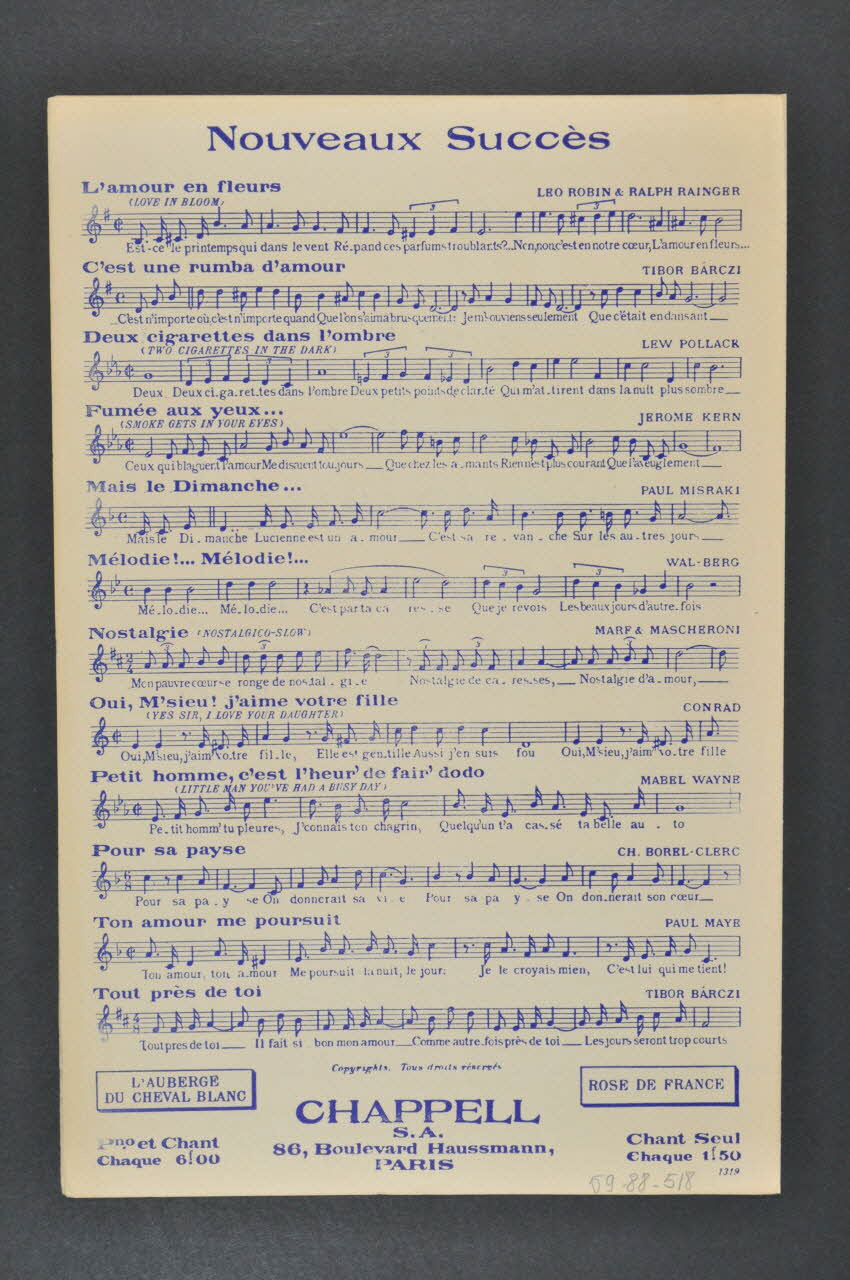 Nouveaux Succès
L'amour en fleurs
LEO ROBIN & RALPH RAINGER
(LOVE IN BLOOM)
Est-ce le printemps qui dans le vent Ré.pand ces parfums troublants?...Non,non,c'est en notre cœur,L'amour en fleurs...
C'est une rumba d'amour
TIBOR BARCZI
C'est n'importe où,c'est n'importe quand Que l'on s'aima brus-quement: Je m'souviens seulement Que c'était en dansant
Deux cigarettes dans l'ombre
LEW POLLACK
(TWO CIGARETTES IN THE DARK)
Deux Deux ci.ga.ret.tes dans l'ombre Deux petits points de clar.té Qui m'at.tirent dans la nuit plus sombre
Fumée aux yeux...
JEROME KERN
(SMOKE GETS IN YOUR EYES)
Ceux qui blaguent l'amour Me disaient toujours Que chez les a-mants Rien n'est plus courant Que l'aveuglement
Mais le Dimanche...
PAUL MISRAKI
Mais le Di-manche Lucienne est un a-mour C'est sa re-van-che Sur les au-tres jours
Mélodie!... Mélodie!...
WAL-BERG
Mé.lo.die... Mé.lo.die... C'est par ta ca res-se Que je revois Les beaux jours d'autre.fois
Nostalgie (NOSTALGICO-SLOW)
MARF & MASCHERONI
Mon pauvre cœur se ronge de nos.tal.gi.e Nostalgie de ca-res-ses, Nostalgie d'a-mour,
Oui, M'sieu! j'aime votre fille
CONRAD
(YES SIR, I LOVE YOUR DAUGHTER)
Oui,M'sieu,j'aim' vo.tre fil-le, Elle est gen.tille Aussi j'en suis fou Oui,M'sieu,j'aim' vo.tre fille
Petit homme, c'est l'heur' de fair' dodo
MABEL WAYNE
(LITTLE MAN YOU'VE HAD A BUSY DAY)
Pe-tit homm' tu pleures, J'connais ton chagrin, Quelqu'un t'a cas-sé ta belle au-to
Pour sa payse
CH. BOREL-CLERC
Pour sa pa-y se On donnerait sa vi-e Pour sa pa y-se On don.nerait son cœur
Ton amour me poursuit
PAUL MAYE
Ton amour, ton a.mour Me poursuit la nuit, le jour: Je le croyais mien, C'est lui qui me tient!
Tout près de toi
TIBOR BARCZI
Tout près de toi Il fait si bon mon amour Comme autre.fois près de toi Les jours seront trop courts
Copyrights. Tous droits réservés
L'AUBERGE
DU CHEVAL BLANC
ROSE DE FRANCE
CHAPPELL
S.A.
86, Boulevard Haussmann,
PARIS
Pno et Chant
Chaque 6f00
Chant Seul
Chaque 1f50
1319
59-88-518